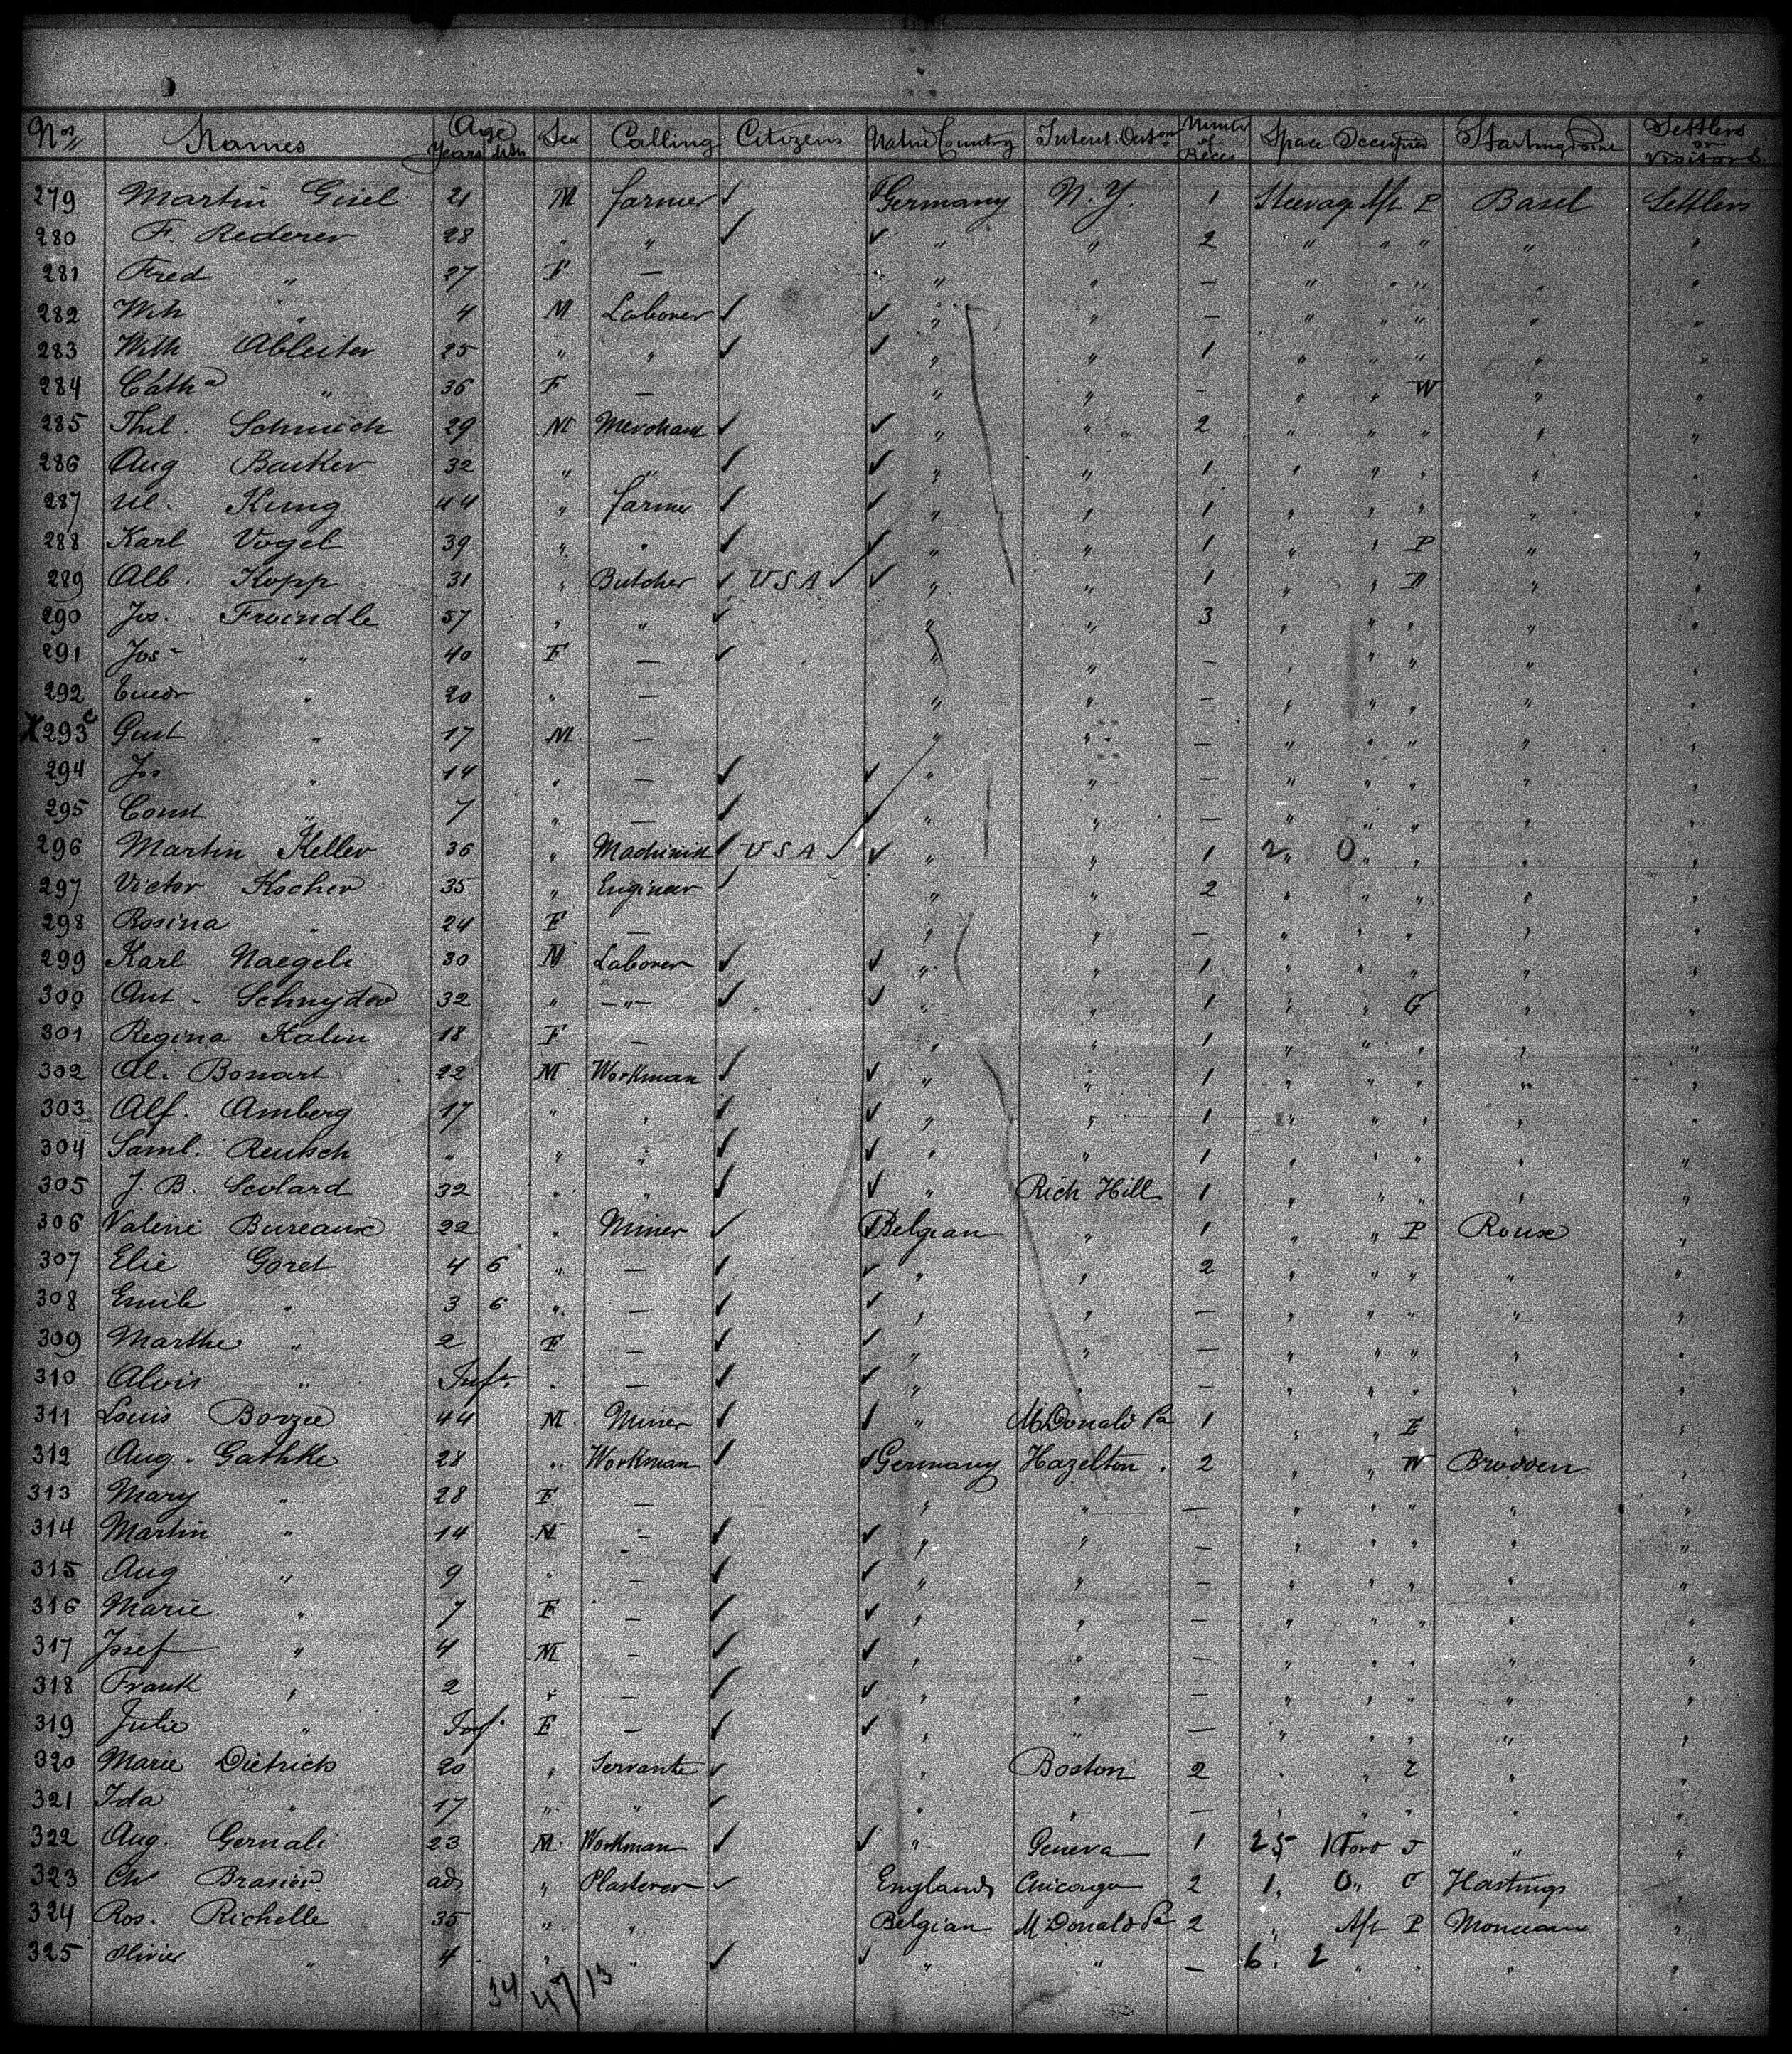 Nos Names Age Years Mths Sex Calling Citizens Native Country Intent. Dest on Number of Pieces Space Occupied Starting Point Settlers or Visitors
279 Martin Gisel 21 M farmer ✓ Germany N.Y. 1 Steerag Aft P Basel Settlers
280 F. Rederer 28 " " ✓ ✓ " " 2 " " " " "
281 Fred " 27 F — " " — " " " " "
282 Wilh " 4 M Laborer ✓ ✓ " " — " " " " "
283 Wilh Ableiter 25 " " ✓ ✓ " " 1 " " " " "
284 Catha " 36 F — " " — " " W " "
285 Phil. Schmich 29 M Merchant ✓ ✓ " " 2 " " " " "
286 Aug Barker 32 " " ✓ ✓ " " 1 " " " " "
287 Ul. Kung 44 " farmer ✓ ✓ " " 1 " " " " "
288 Karl Vogel 39 " " ✓ ✓ " " 1 " " P " "
289 Alb. Kopp 31 " Butcher ✓ USA ✓ ✓ " " 1 " " " "
290 Jos. Froindle 57 " " ✓ " " 3 " " " " "
291 Jos " 40 F — ✓ " " — " " " " "
292 " 20 " — " " — " " " " "
X 293 c Gust " 17 M — " " — " " " " "
294 Jos " 14 " — ✓ ✓ " " — " " " " "
295 Const " 7 " — ✓ ✓ " " — " " " " "
296 Martin Keller 36 " Machinist ✓ USA ✓ ✓ " " 1 2 " O " " " "
297 Victor Kocher 35 " Engineer ✓ " " 2 " " " " "
298 Rosina " 24 F — " " — " " " " "
299 Karl Naegeli 30 M Laborer ✓ ✓ " " 1 " " " " "
300 Ant. Schnyder 32 " — " — ✓ ✓ " " 1 " " G " "
301 Regina Kalin 18 F — " " 1 " " " " "
302 Al. Bonart 22 M Workman ✓ ✓ " " 1 " " " " "
303 Alf. Amberg 17 " " ✓ ✓ " " 1 " " " " "
304 Saml. Reutsch " " " ✓ ✓ " " 1 " " " " "
305 J. B. Scolard 32 " " ✓ ✓ " Rich Hill 1 " " " " "
306 Valeri Bureaux 22 " Miner ✓ Belgian " 1 " " P Roux "
307 Elie Goret 4 6 " — ✓ ✓ " " 2 " " " " "
308 Emile " 3 6 " — ✓ ✓ " " — " " " " "
309 Marthe " 2 F — ✓ ✓ " " — " " " " "
310 Alois " Inft. " — ✓ ✓ " " — " " " " "
311 Louis Borzee 44 M Miner ✓ ✓ " McDonald Pa 1 " " E " "
312 Aug. Gathke 28 " Workman ✓ ✓ Germany Hazelton. 2 " " W "
313 Mary " 28 F — " " — " " " " "
314 Martin " 14 M — ✓ ✓ " " — " " " " "
315 Aug " 9 " — ✓ ✓ " " — " " " " "
316 Marie " 7 F — ✓ ✓ " " — " " " " "
317 Josef " 4 M — ✓ ✓ " " — " " " " "
318 Frank " 2 " — ✓ ✓ " " — " " " " "
319 Julie " Inf. F — ✓ ✓ " " — " " " " "
320 Marie Dietrich 20 " Servante ✓ " Boston 2 " " " "
321 Ida " 17 " " ✓ " " — " " " " "
322 Aug. Gernali 23 M Workman ✓ ✓ " Geneva 1 25 1 Ford J " "
323 Chs Brasier ad " Plasterer ✓ England Chicago 2 1 " O " Hastings "
324 Ros. Richelle 35 " " Belgian McDonald Pa 2 " Aft P Monceau "
325 Olivier " 4 " " ✓ ✓ " " — 6 " 2 " " " "
34 47/13